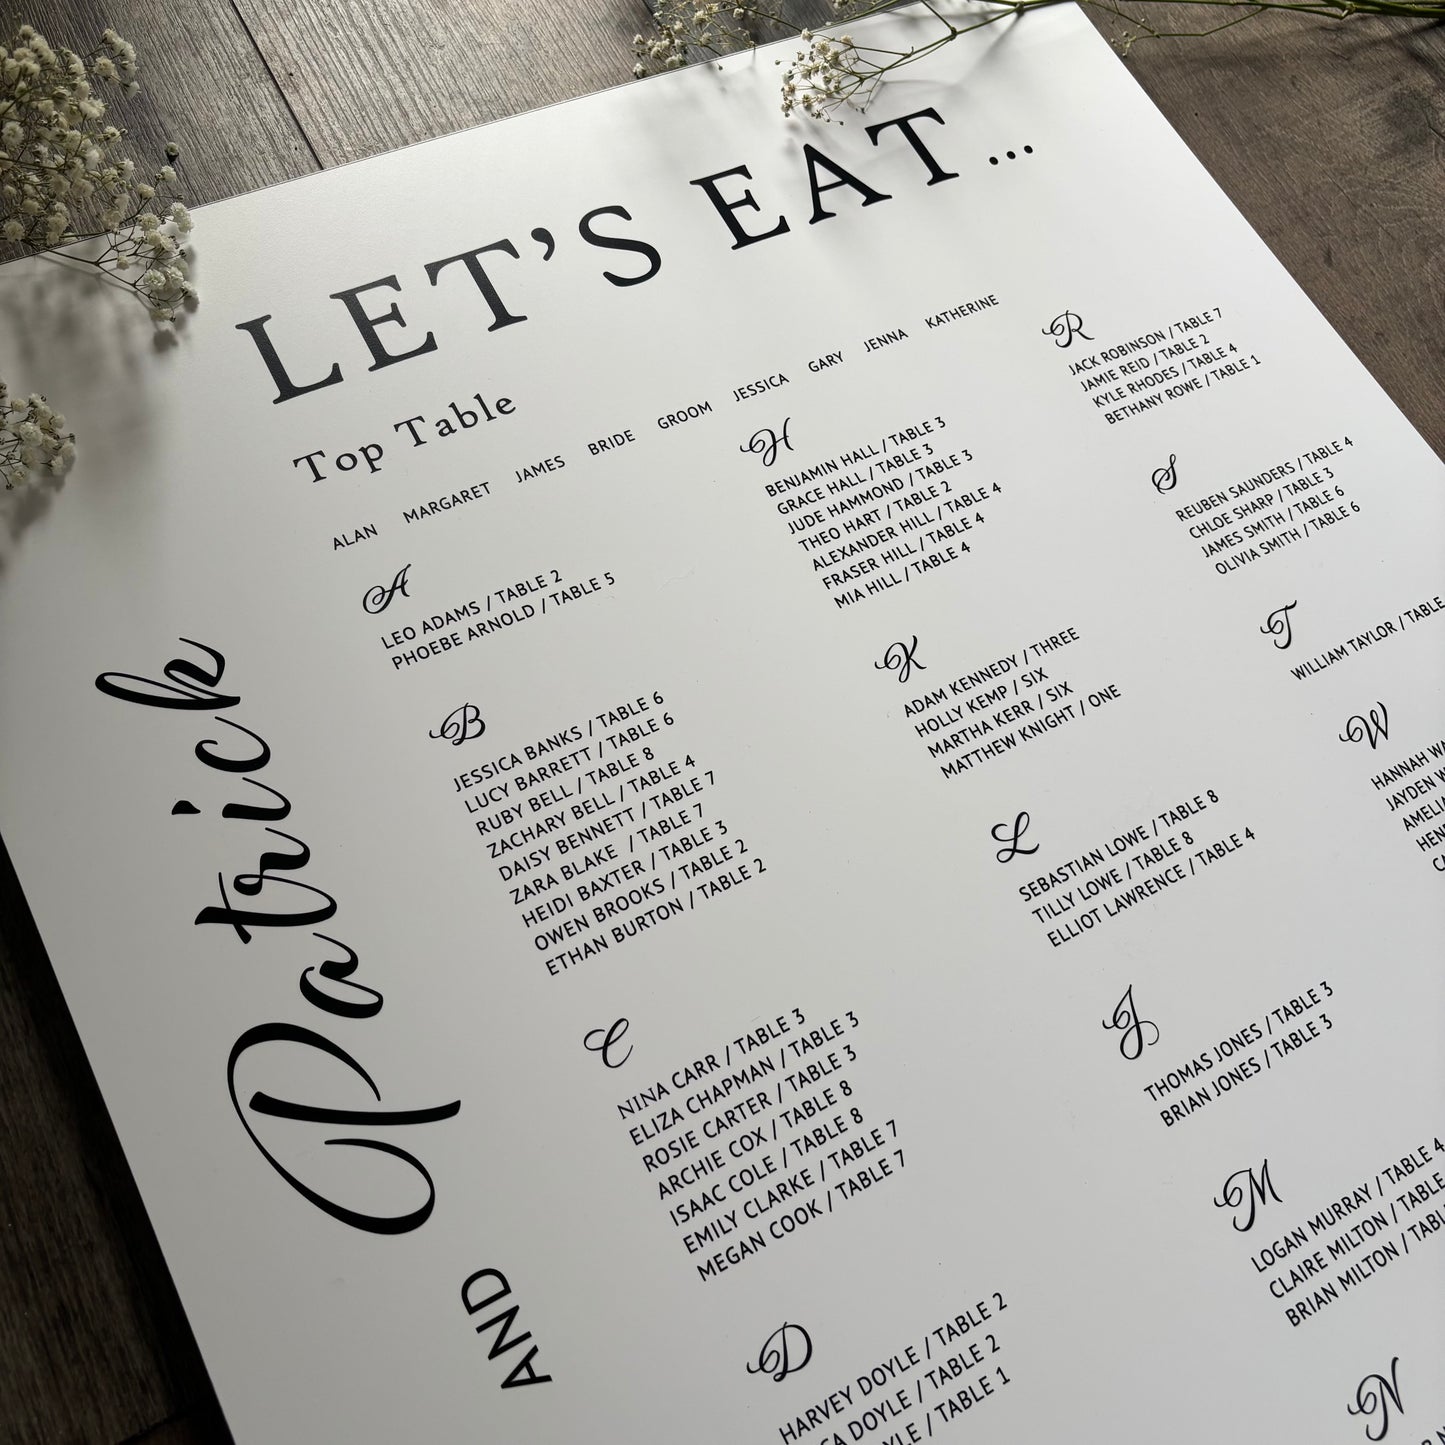 LET'S EAT...
Top Table
ALAN MARGARET JAMES BRIDE GROOM JESSICA GARY JENNA KATHERINE
A
LEO ADAMS / TABLE 2
PHOEBE ARNOLD / TABLE 5
B
JESSICA BANKS / TABLE 6
LUCY BARRETT / TABLE 6
RUBY BELL / TABLE 8
ZACHARY BELL / TABLE 4
DAISY BENNETT / TABLE 7
ZARA BLAKE / TABLE 7
HEIDI BAXTER / TABLE 3
OWEN BROOKS / TABLE 2
ETHAN BURTON / TABLE 2
C
NINA CARR / TABLE 3
ELIZA CHAPMAN / TABLE 3
ROSIE CARTER / TABLE 3
ARCHIE COX / TABLE 8
ISAAC COLE / TABLE 8
EMILY CLARKE / TABLE 7
MEGAN COOK / TABLE 7
D
HARVEY DOYLE / TABLE 2
DOYLE / TABLE 2
/ TABLE 1
H
BENJAMIN HALL / TABLE 3
GRACE HALL / TABLE 3
JUDE HAMMOND / TABLE 3
THEO HART / TABLE 2
ALEXANDER HILL / TABLE 4
FRASER HILL / TABLE 4
MIA HILL / TABLE 4
K
ADAM KENNEDY / THREE
HOLLY KEMP / SIX
MARTHA KERR / SIX
MATTHEW KNIGHT / ONE
L
SEBASTIAN LOWE / TABLE 8
TILLY LOWE / TABLE 8
ELLIOT LAWRENCE / TABLE 4
J
THOMAS JONES / TABLE 3
BRIAN JONES / TABLE 3
M
LOGAN MURRAY / TABLE 4
CLAIRE MILTON / TABLE
BRIAN MILTON /
N
R
JACK ROBINSON / TABLE 7
JAMIE REID / TABLE 2
KYLE RHODES / TABLE 4
BETHANY ROWE / TABLE 1
S
REUBEN SAUNDERS / TABLE 4
CHLOE SHARP / TABLE 3
JAMES SMITH / TABLE 6
OLIVIA SMITH / TABLE 6
T
WILLIAM TAYLOR / TABLE
W
HANNAH
JAYDEN
Patrick
AND